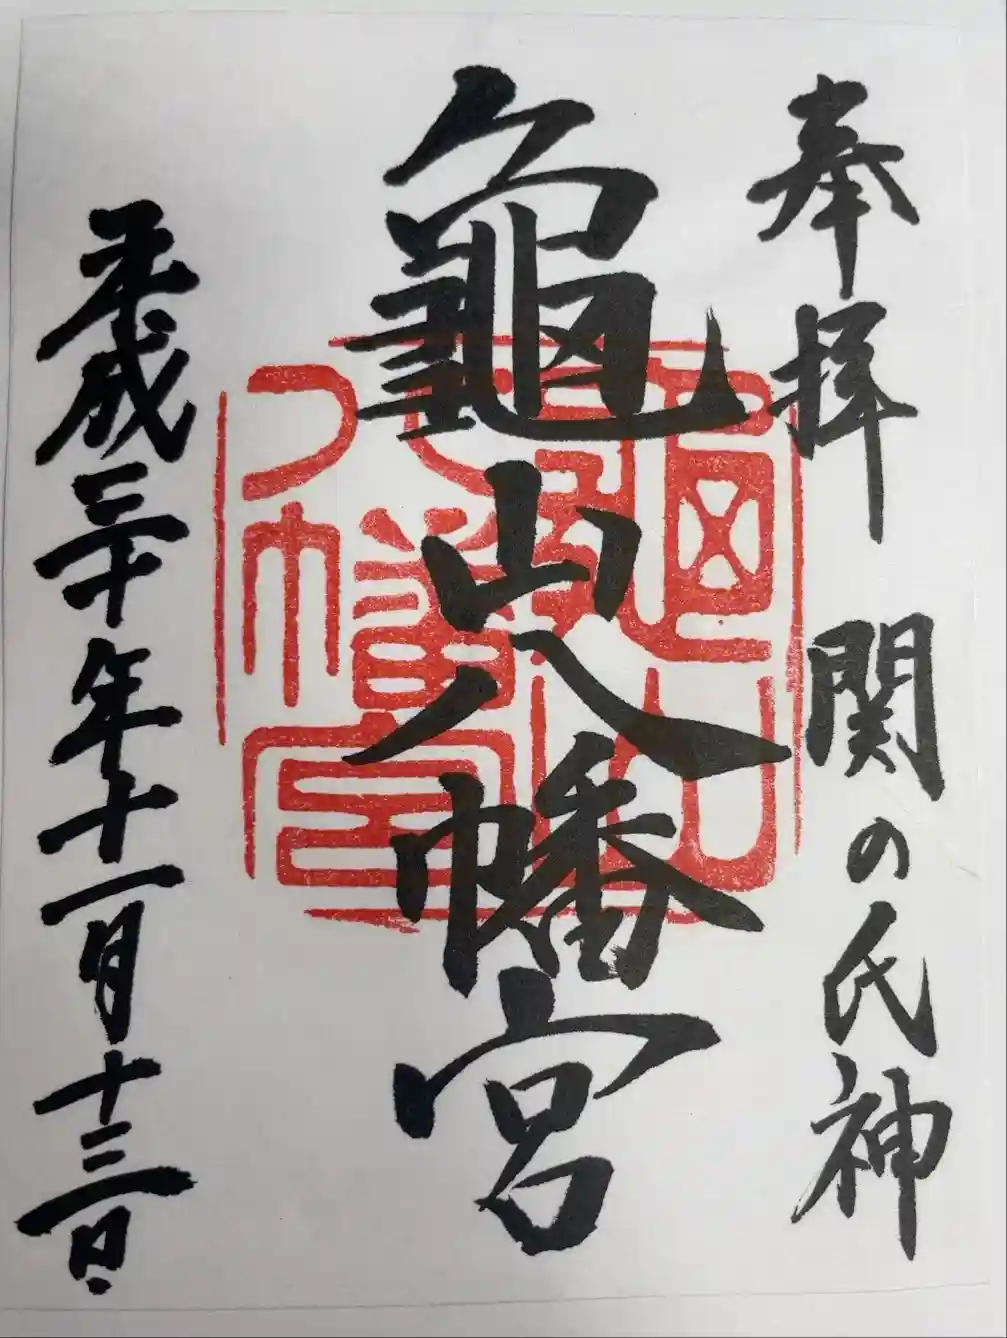 奉拝 関の氏神
龜山八幡宮
平成三十年十一月十三日
龜山
八幡宮